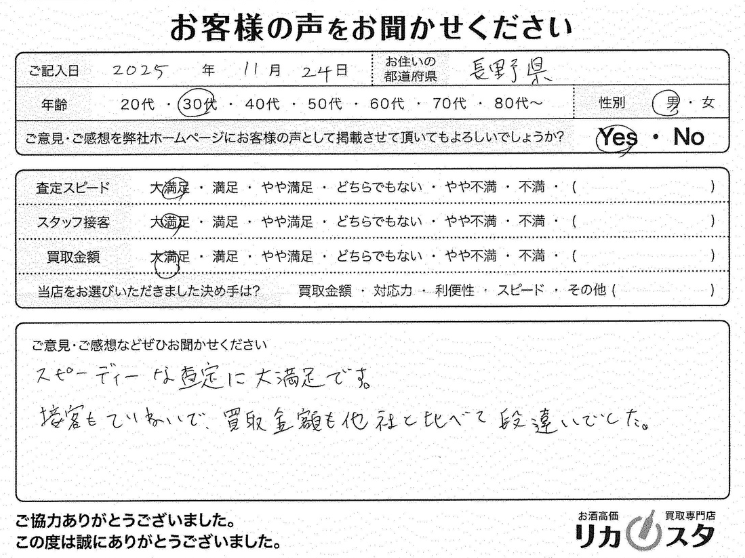 お客様の声をお聞かせください
ご記入日 2025 年 11 月 24 日 お住いの都道府県 長野県
年齢 20代 ・ 30代 ・ 40代 ・ 50代 ・ 60代 ・ 70代 ・ 80代〜 性別 男 ・ 女
ご意見・ご感想を弊社ホームページにお客様の声として掲載させて頂いてもよろしいでしょうか? Yes ・ No
査定スピード 大満足 ・ 満足 ・ やや満足 ・ どちらでもない ・ やや不満 ・ 不満 ・ ( )
スタッフ接客 大満足 ・ 満足 ・ やや満足 ・ どちらでもない ・ やや不満 ・ 不満 ・ ( )
買取金額 大満足 ・ 満足 ・ やや満足 ・ どちらでもない ・ やや不満 ・ 不満 ・ ( )
当店をお選びいただきました決め手は? 買取金額 ・ 対応力 ・ 利便性 ・ スピード ・ その他 ( )
ご意見・ご感想などぜひお聞かせください
スピーディーな査定に大満足です。
接客もていねいで、買取金額も他社と比べて段違いでした。
ご協力ありがとうございました。
この度は誠にありがとうございました。
お酒高価 買取専門店
リカスタ